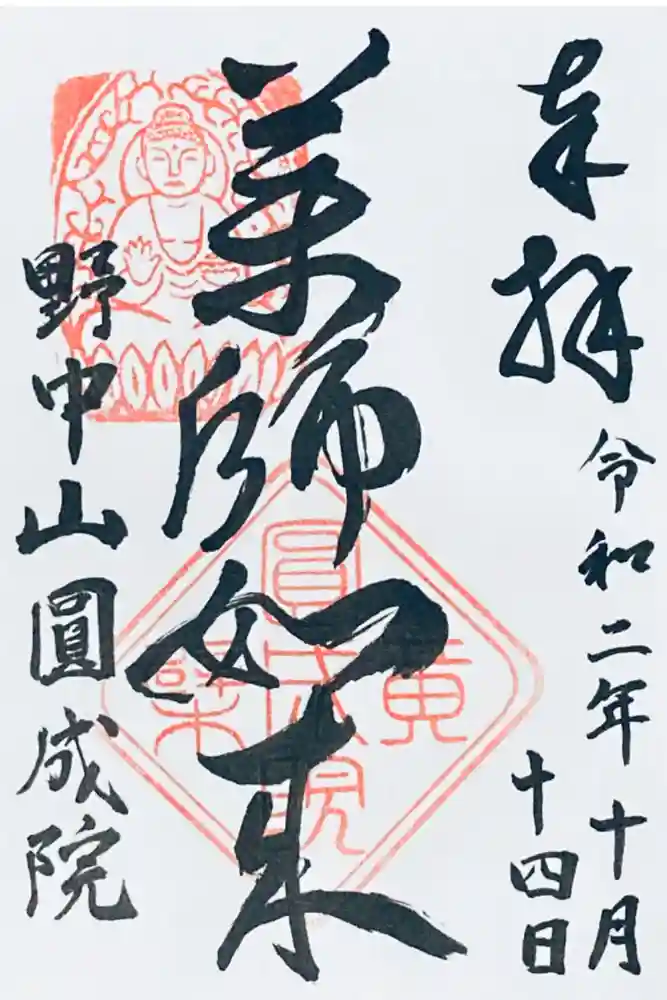 奉拝
令和二年十月
十四日
薬師如来
野中山圓成院
黄檗
圓成院